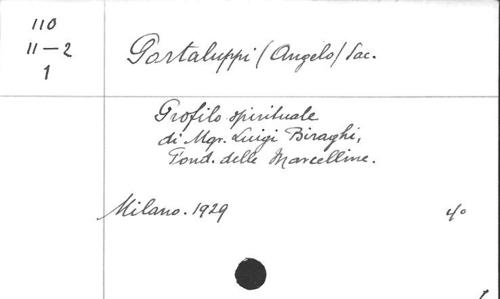 110
11-2
1
Portaluppi (Angelo) Sac.
Profilo spirituale
di Mgr. Luigi Biraghi,
Fond. delle Marcelline.
Milano. 1929
4°